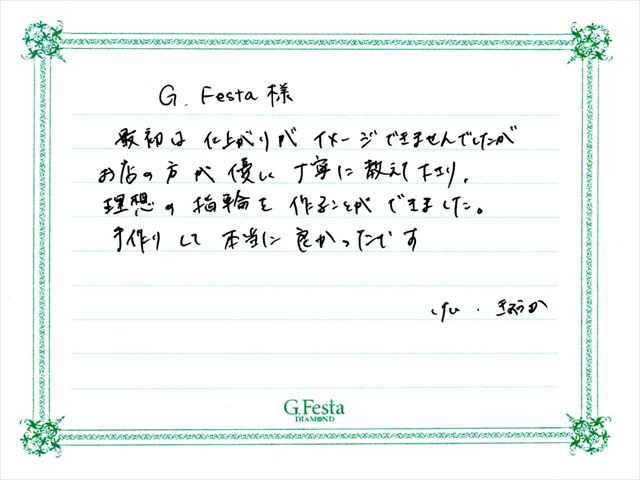 G. Festa 様
最初は仕上がりがイメージできませんでしたが
お店の方が優しく丁寧に教えて下さり、
理想の指輪を作ることができました。
手作りして本当に良かったです
きょうか
G.Festa
DIAMOND